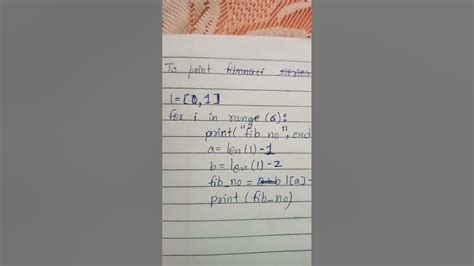 To print fibonacci series
l=[0,1]
for i in range(6):
print("fib no",end
a=len(l)-1
b=len(l)-2
fib_no = l[a]-
print(fib_no)